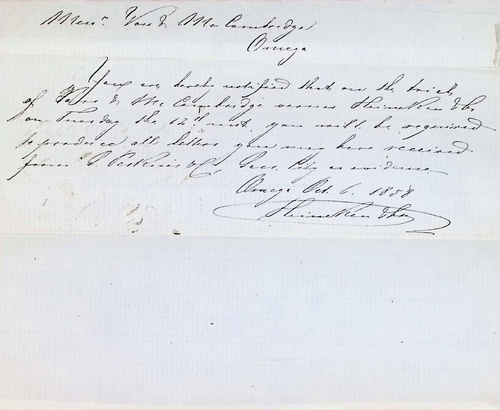 Messrs Vose & McCambridge
Omega
You are hereby notified that on the trial
of Vose & McCambridge versus Heineken & Co
on Tuesday the 12th inst. you will be required
to produce all letters you may have received
from Perkins & Co, as evidence
Omega Oct. 6. 1858
Heineken & Co